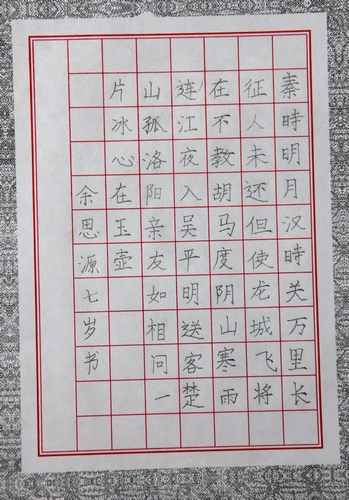 秦時明月汉時关万里长
征人未还但使龙城飞将
在不教胡马度阴山寒雨
連江夜入吴平明送客楚
山孤洛阳亲友如相问一
片冰心在玉壶
余思源七岁书